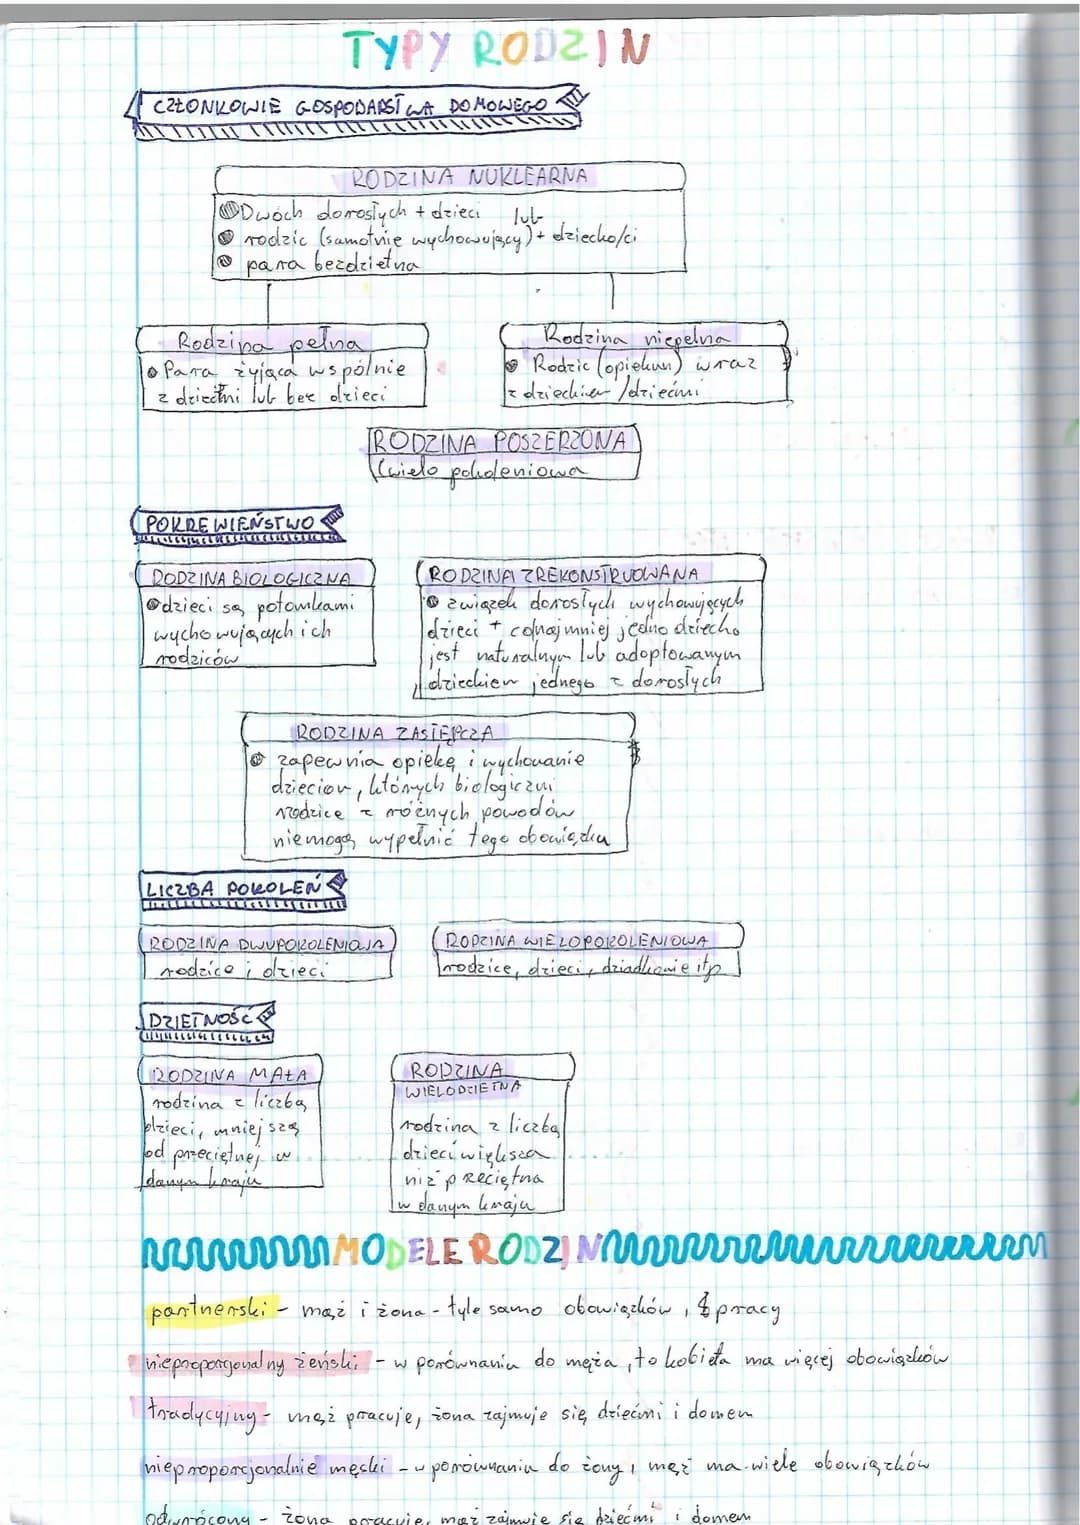 TYPY RODZIN
CZŁONKOWIE GOSPODARSTWA DOMOWEGO
RODZINA NUKLEARNA
Dwóch dorosłych + dzieci lub
rodzic (samotnie wychowujący) + dziecko/ci
para bezdzietna
Rodzina pełna
Para żyjąca wspólnie
z dziećmi lub bez dzieci
Rodzina niepełna
Rodzic (opiekun) wraz
z dzieckiem/dziećmi
RODZINA POSZERZONA
(wielo pokoleniowa
POKREWIEŃSTWO
RODZINA BIOLOGICZNA
dzieci są potomkami
wychowujących ich
rodziców
RODZINA ZREKONSTRUOWANA
związek dorosłych wychowujących
dzieci + conajmniej jedno dziecko
jest naturalnym lub adoptowanym
dzieckiem jednego z dorosłych
RODZINA ZASTĘPCZA
zapewnia opiekę i wychowanie
dzieciom, których biologiczni
rodzice z różnych powodów
niemogą wypełnić tego obowiązku
LICZBA POKOLEŃ
RODZINA DWUPOKOLENIOWA
rodzice i dzieci
RODZINA WIELOPOKOLENIOWA
rodzice, dzieci, dziadkowie itp
DZIETNOŚĆ
RODZINA MAŁA
rodzina z liczbą
dzieci, mniejszą
od przeciętnej w
danym kraju
RODZINA
WIELODZIETNA
rodzina z liczbą
dzieci większa
niż przeciętna
w danym kraju
MODELE RODZIN
partnerski - mąż i żona - tyle samo obowiązków, pracy
nieproporcjonalny żeński - w porównaniu do męża, to kobieta ma więcej obowiązków
tradycyjny - mąż pracuje, żona zajmuje się dziećmi i domem
nieproporcjonalnie męski - w porównaniu do żony, mąż ma wiele obowiązków
odwrócony - żona pracuje, mąż zajmuje się dziećmi i domem